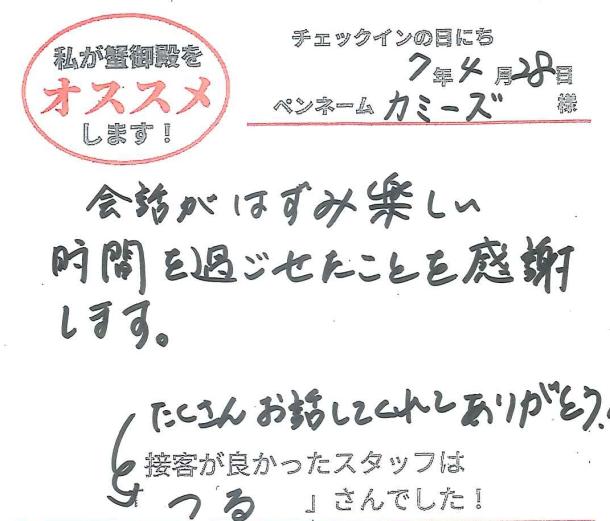 私が蟹御殿を
オススメ
します！
チェックインの日にち
7年4月28日
ペンネーム カミーズ 様
会話がはずみ楽しい
時間を過ごせたことを感謝
します。
たくさんお話してくれてありがとう。
接客が良かったスタッフは
つる 」さんでした！